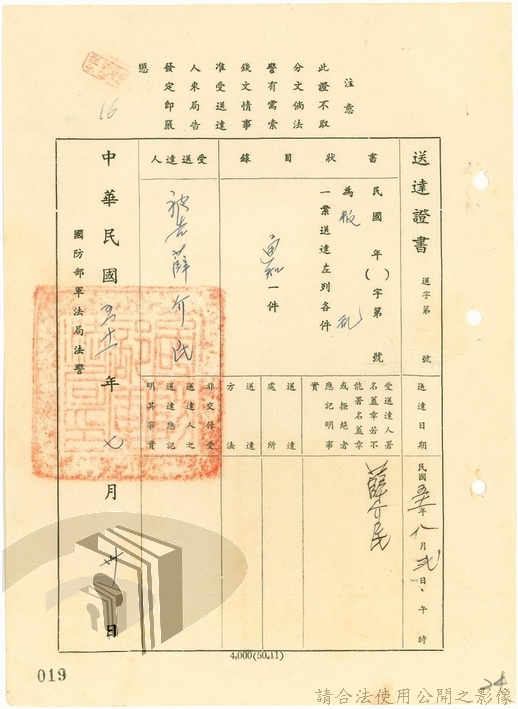 注意
此證不取
分文倘法
警有需索
錢文情事
准受送達
人來局告
發定即嚴
懲
16
送達證書
送字第 號
書狀目錄
民國 年( )字第 號
為叛亂
一案送達左列各件
通知一件
受送達人
被告薛介民
送達日期
民國五十一年八月弍日、午 時
受送達人署
名蓋章若不
能署名蓋章
或拒絕者
應記明事
實
薛介民
送達
處所
送達
方法
非交付受
送達人之
送達應記
明其事實
中華民國五十一年七月卅日
國防部軍法局法警
4,000(50.11)
019
24
請合法使用公開之影像